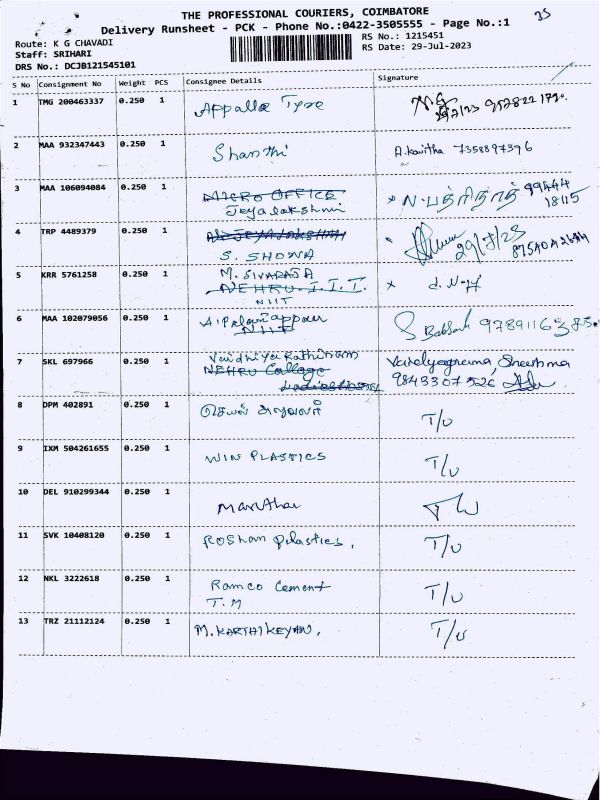 THE PROFESSIONAL COURIERS, COIMBATORE
35
Delivery Runsheet - PCK - Phone No.:0422-3505555 - Page No.:1
Route: K G CHAVADI
RS No.: 1215451
Staff: SRIHARI
RS Date: 29-Jul-2023
DRS No.: DCJB121545101
S No Consignment No Weight PCS Consignee Details Signature
1 TMG 200463337 0.250 1 Appallo Tyre
2 MAA 932347443 0.250 1 Shanthi A.Kavitha 7358897396
3 MAA 106094084 0.250 1 MICRO OFFICE 99444
Jeyalakshmi 18115
4 TRP 4489379 0.250 1
S. SHOWA 29/7/23
5 KRR 5761258 0.250 1 M. SIVARAJA
NEHRU I.I.T.
NIIT
6 MAA 102079056 0.250 1 A.Palaniappan
NIIT
7 SKL 697966 0.250 1 Vaidhiya Rathinam
NEHRU College 9843307526
8 DPM 402891 0.250 1 T/U
9 IXM 504261655 0.250 1 WIN PLASTICS T/U
10 DEL 910299344 0.250 1
11 SVK 10408120 0.250 1 ROSHAN Plastics, T/U
12 NKL 3222618 0.250 1 Ramco Cement T/U
T.M
13 TRZ 21112124 0.250 1 M.KARTHIKEYAN. T/U